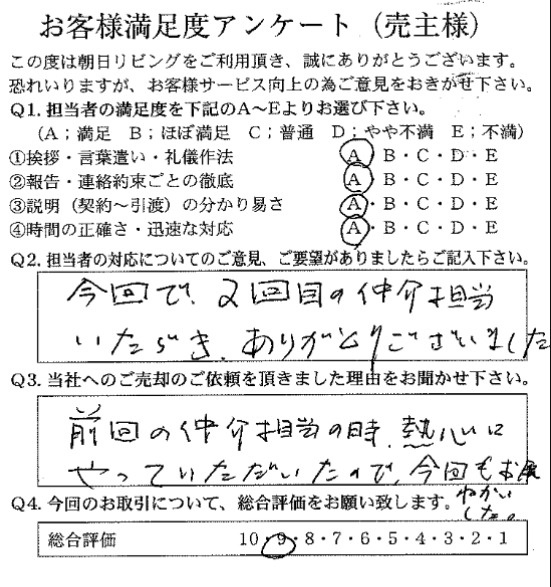 お客様満足度アンケート（売主様）
この度は朝日リビングをご利用頂き、誠にありがとうございます。
恐れいりますが、お客様サービス向上の為ご意見をおきかせ下さい。
Q1. 担当者の満足度を下記のA〜Eよりお選び下さい。
（A；満足　B；ほぼ満足　C；普通　D；やや不満　E；不満）
①挨拶・言葉遣い・礼儀作法　A・B・C・D・E
②報告・連絡約束ごとの徹底　A・B・C・D・E
③説明（契約〜引渡）の分かり易さ　A・B・C・D・E
④時間の正確さ・迅速な対応　A・B・C・D・E
Q2. 担当者の対応についてのご意見、ご要望がありましたらご記入下さい。
今回で、2回目の仲介担当
いただき、ありがとうございました
Q3. 当社へのご売却のご依頼を頂きました理由をお聞かせ下さい。
前回の仲介担当の時、熱心に
やっていただいたので、今回もお願
ねがい
した。
Q4. 今回のお取引について、総合評価をお願い致します。
総合評価　10・9・8・7・6・5・4・3・2・1